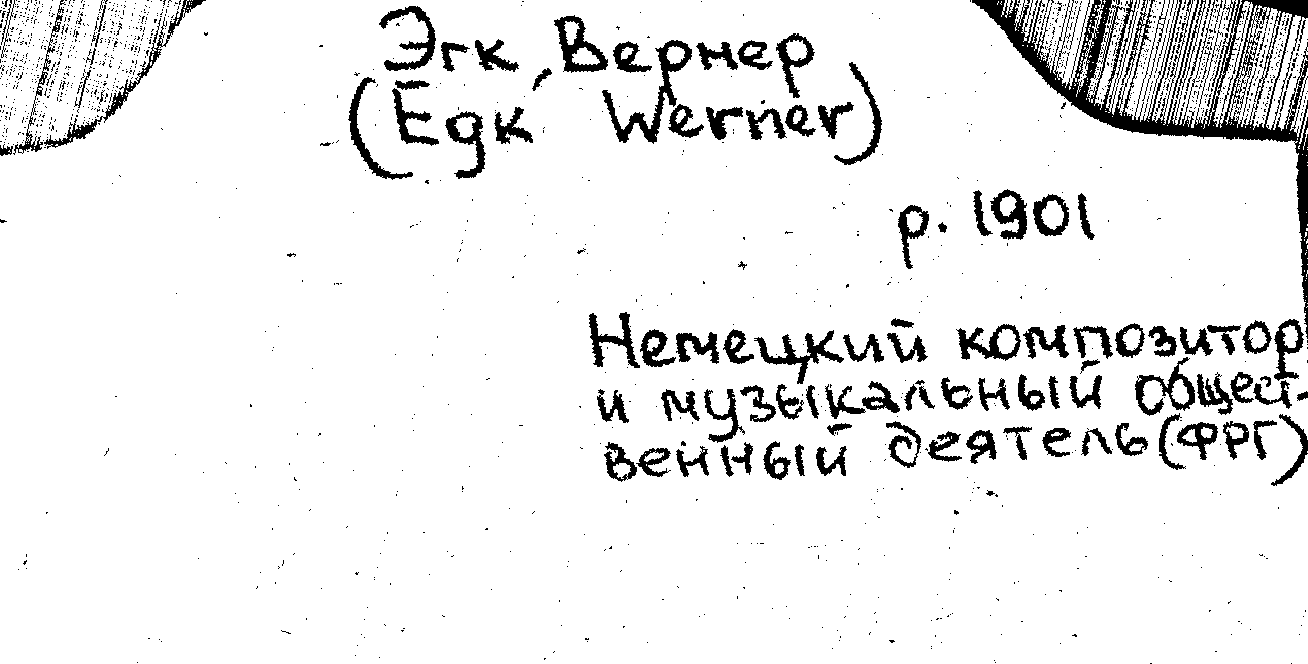 Эгк, Вернер
(Egk Werner)
р. 1901
Немецкий композитор
и музыкальный общест-
венный деятель (ФРГ)